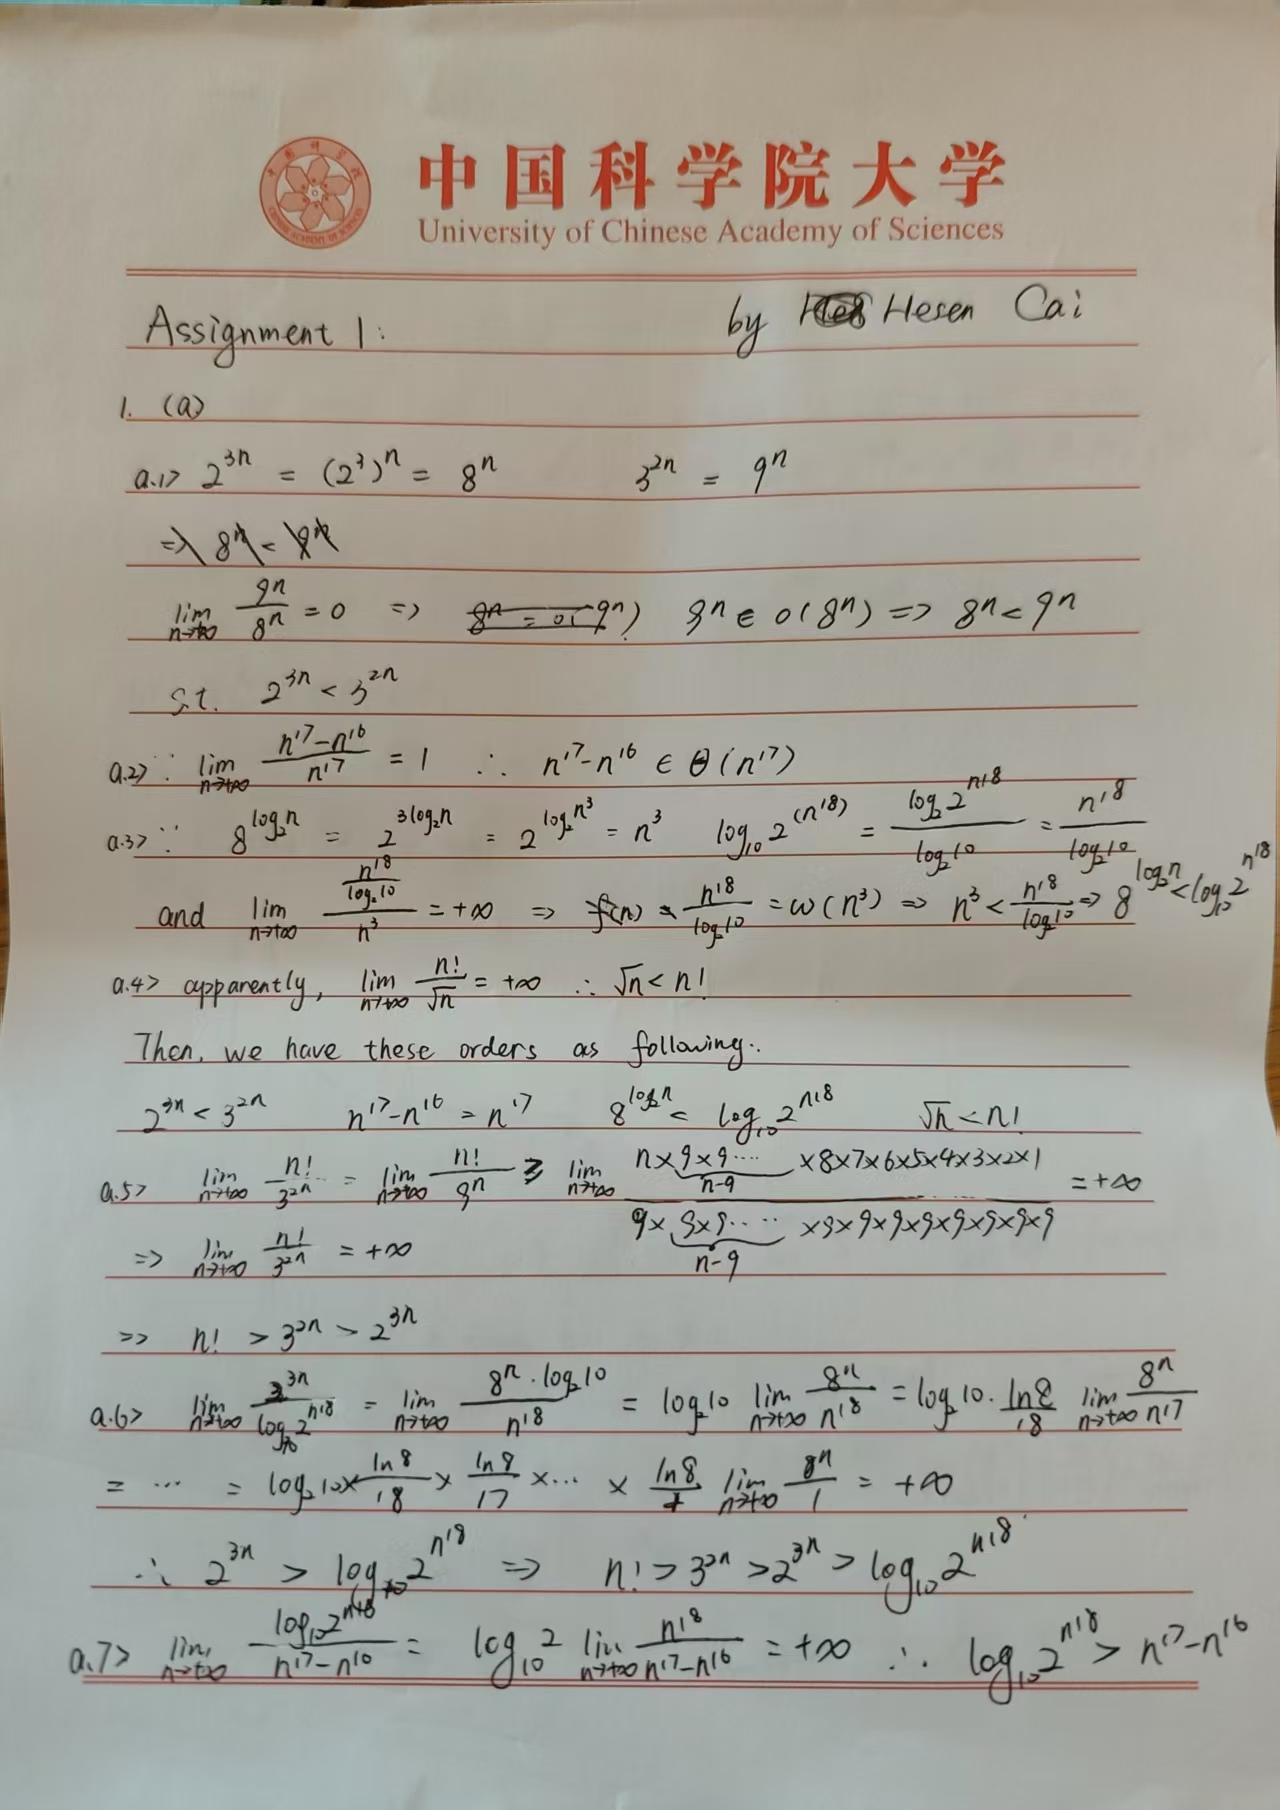 中国科学院大学
University of Chinese Academy of Sciences
Assignment 1: by Hesen Cai
1. (a)
a.1> 2^{3n} = (2^3)^n = 8^n 3^{2n} = 9^n
=> 8^n < 9^n
lim_{n→+∞} 9^n/8^n = 0 => 8^n = o(9^n) 9^n ∈ o(8^n) => 8^n < 9^n
s.t. 2^{3n} < 3^{2n}
a.2> ∵ lim_{n→+∞} (n^{17}-n^{16})/n^{17} = 1 ∴ n^{17}-n^{16} ∈ Θ(n^{17})
a.3> ∵ 8^{log_2 n} = 2^{3log_2 n} = 2^{log_2 n^3} = n^3 log_{10} 2^{(n^{18})} = log_2 2^{n^{18}}/log_2 10 = n^{18}/log_2 10
and lim_{n→+∞} (n^{18}/log_2 10)/n^3 = +∞ => f(n) = n^{18}/log_2 10 = ω(n^3) => n^3 < n^{18}/log_2 10 => 8^{log_2 n} < log_{10} 2^{n^{18}}
a.4> apparently, lim_{n→+∞} n!/√n = +∞ ∴ √n < n!
Then, we have these orders as following:
2^{3n} < 3^{2n} n^{17}-n^{16} = n^{17} 8^{log_2 n} < log_{10} 2^{n^{18}} √n < n!
a.5> lim_{n→+∞} n!/3^{2n} = lim_{n→+∞} n!/9^n ≥ lim_{n→+∞} (n×9×9····[n-9]×8×7×6×5×4×3×2×1)/(9×9×9·····[n-9]×9×9×9×9×9×9×9×9) = +∞
=> lim_{n→+∞} n!/3^{2n} = +∞
=> n! > 3^{2n} > 2^{3n}
a.6> lim_{n→+∞} 2^{3n}/log_{10} 2^{n^{18}} = lim_{n→+∞} 8^n·log_2 10/n^{18} = log_2 10 lim_{n→+∞} 8^n/n^{18} = log_2 10 · ln8/18 lim_{n→+∞} 8^n/n^{17}
= ··· = log_2 10 × ln8/18 × ln8/17 ×··· × ln8/1 lim_{n→+∞} 8^n/1 = +∞
∴ 2^{3n} > log_{10} 2^{n^{18}} => n! > 3^{2n} > 2^{3n} > log_{10} 2^{n^{18}}
a.7> lim_{n→+∞} log_{10} 2^{n^{18}}/(n^{17}-n^{16}) = log_{10} 2 lim_{n→+∞} n^{18}/(n^{17}-n^{16}) = +∞ ∴ log_{10} 2^{n^{18}} > n^{17}-n^{16}